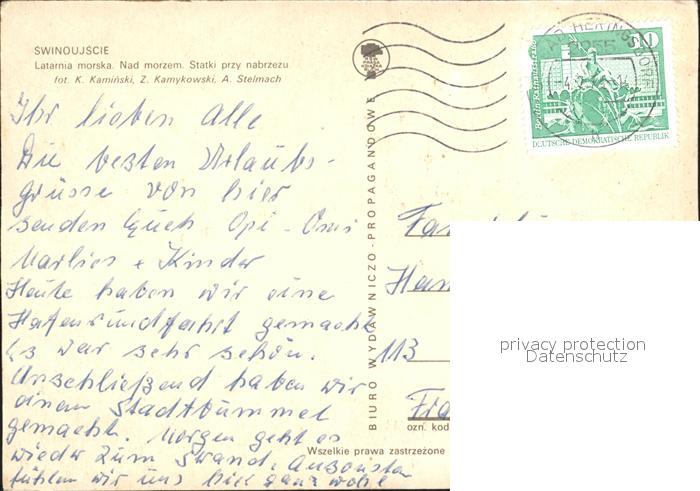 ŚWINOUJŚCIE
Latarnia morska. Nad morzem. Statki przy nabrzeżu
fot. K. Kamiński, Z. Kamykowski, A. Stelmach
Ihr lieben Alle
Die besten Urlaubs-
grüsse von hier
senden Euch Opi - Omi
Marlies + Kinder
Heute haben wir eine
Hafenrundfahrt gemacht
Es war sehr schön.
Anschließend haben wir
einen Stadtbummel
gemacht. Morgen geht es
wieder zum Strand. Ansonsten
fühlen wir uns hier ganz wohl
BIURO WYDAWNICZO-PROPAGANDOWE
Wszelkie prawa zastrzeżone
HERINGSDORF
2255
Berlin, Rathausstraße
10
DEUTSCHE DEMOKRATISCHE REPUBLIK
Fa
Han
113
Fra
ozn. kod
privacy protection
Datenschutz